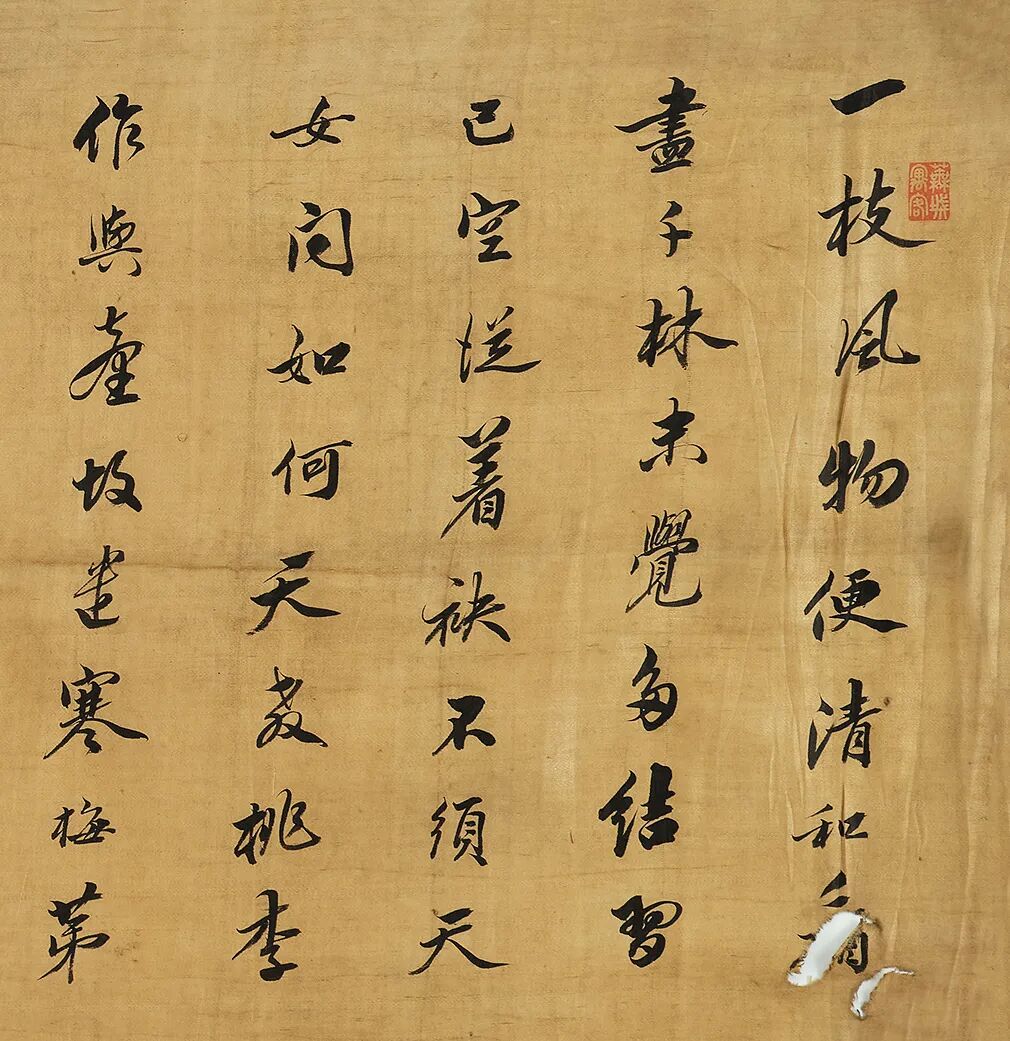 一枝風物便清和看
盡千林未覺多結習
已空從着袂不須天
女問如何天教桃李
作與臺故遣寒梅第